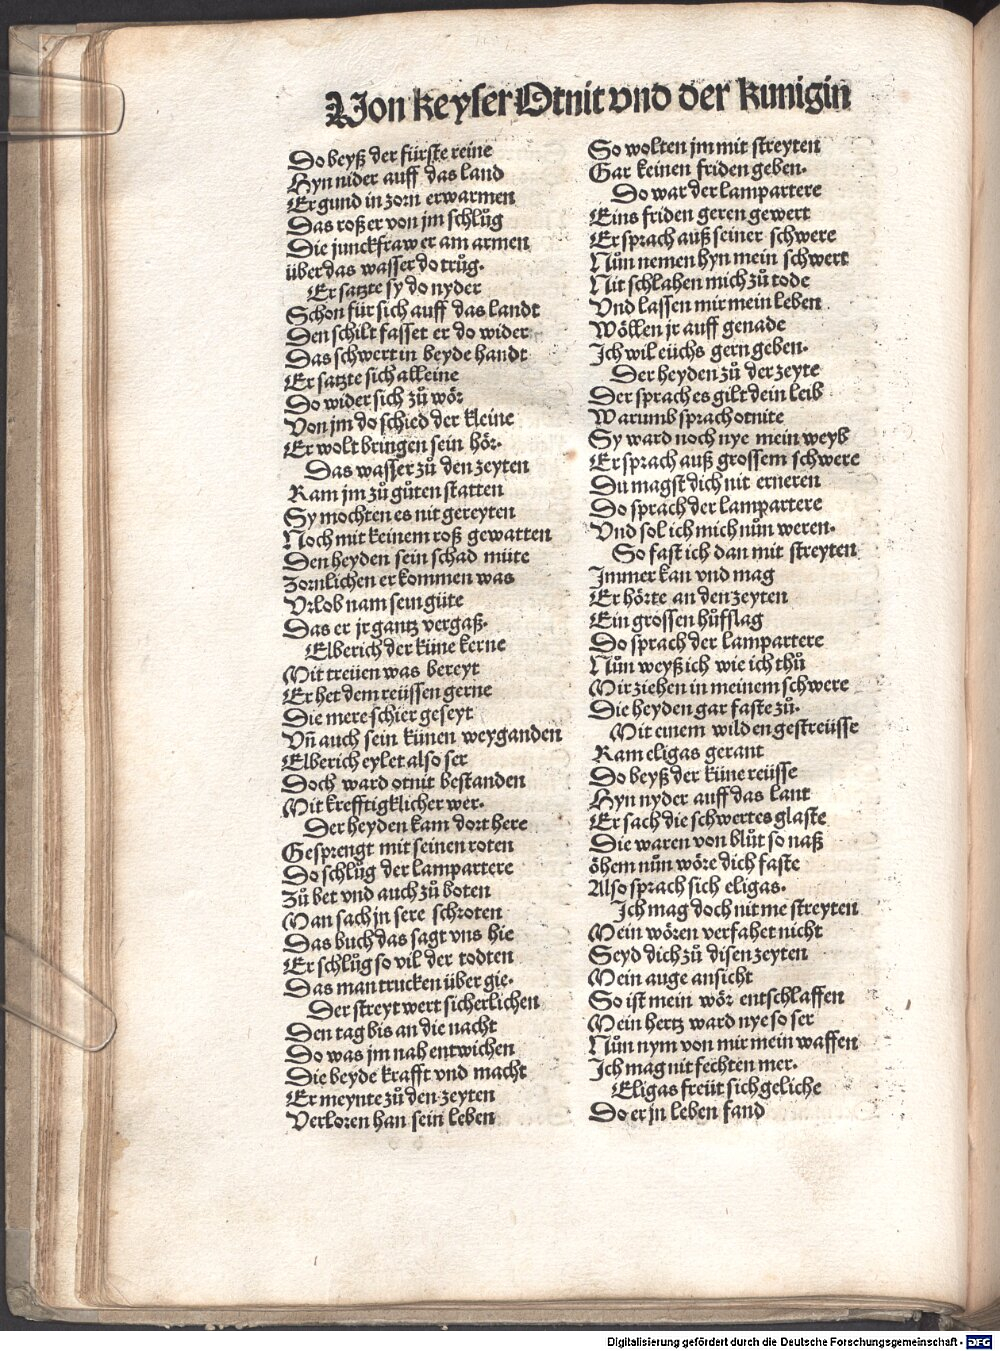 Von keyser Otnit vnd der kunigin
Do beyß der fürste reine
Hyn nider auff das land
Er gund in zorn erwarmen
Das roß er von jm schlůg
Die junckfraw er am armen
über das wasser do trůg.
Er satzte sy do nyder
Schon für sich auff das landt
Den schilt fasset er do wider
Das schwert in beyde handt
Er satzte sich alleine
Do wider sich zů wör
Von jm do schied der kleine
Er wolt bringen sein hör.
Das wasser zů den zeyten
Kam jm zů gůten statten
Sy mochten es nit gereyten
Noch mit keinem roß gewatten
Den heyden sein schad müte
Zornlichen er kommen was
Vrlob nam sein güte
Das er jr gantz vergaß.
Elberich der küne kerne
Mit treüen was bereyt
Er het dem reüssen gerne
Die mere schier geseyt
Vñ auch sein künen weyganden
Elberich eylet also ser
Doch ward otnit bestanden
Mit krefftigklicher wer.
Der heyden kam dort here
Gesprengt mit seinen roten
Do schlůg der lampartere
Zů bet vnd auch zů boten
Man sach jn sere schroten
Das buch das sagt vns hie
Er schlůg so vil der todten
Das man trucken über gie.
Der streyt wert sicherlichen
Den tag bis an die nacht
Do was jm nah entwichen
Die beyde krafft vnd macht
Er meynte zů den zeyten
Verloren han sein leben
So wolten jm mit streyten
Gar keinen friden geben.
Do war der lampartere
Eins friden geren gewert
Er sprach auß seiner schwere
Nůn nemen hyn mein schwert
Nit schlahen mich zů tode
Vnd lassen mir mein leben
Wöllen jr auff genade
Ich wil eüchs gern geben.
Der heyden zů der zeyte
Der sprach es gilt dein leib
Warumb sprach otnite
Sy ward noch nye mein weyb
Er sprach auß grossem schwere
Du magst dich nit erneren
Do sprach der lampartere
Vnd sol ich mich nůn weren.
So fast ich dan mit streyten
Immer kan vnd mag
Er hörte an den zeyten
Ein grossen hůfslag
Do sprach der lampartere
Nůn weyß ich wie ich thů
Mir ziehen in meinem schwere
Die heyden gar faste zů.
Mit einem wilden gestreüsse
Kam eligas gerant
Do beyß der küne reüsse
Hyn nyder auff das lant
Er sach die schwertes glaste
Die waren von blůt so naß
öhem nůn wöre dich faste
Also sprach sich eligas.
Ich mag doch nit me streyten
Mein wören verfahet nicht
Seyd dich zů disen zeyten
Mein auge ansicht
So ist mein wör entschlaffen
Mein hertz ward nye so ser
Nůn nym von mir mein waffen
Ich mag nit fechten mer.
Eligas freüt sich geliche
Do er jn leben fand
Digitalisierung gefördert durch die Deutsche Forschungsgemeinschaft - DFG